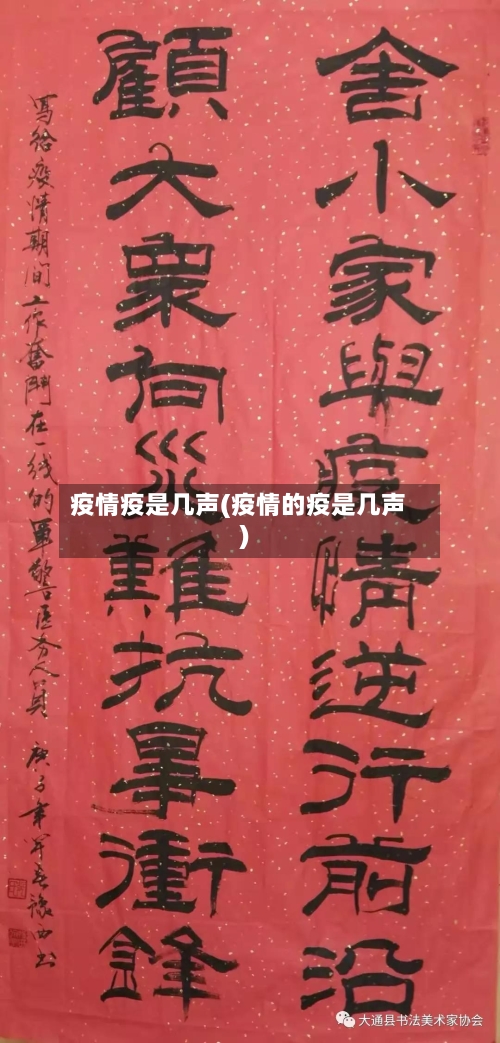 舍小家與疫情逆行前沿
顧大衆向災難抗衝鋒
寫给疫情期间工作奮鬥在一线的軍警医务人員 庚子年豫西书
疫情疫是几声(疫情的疫是几声
)
大通县书法美术家协会